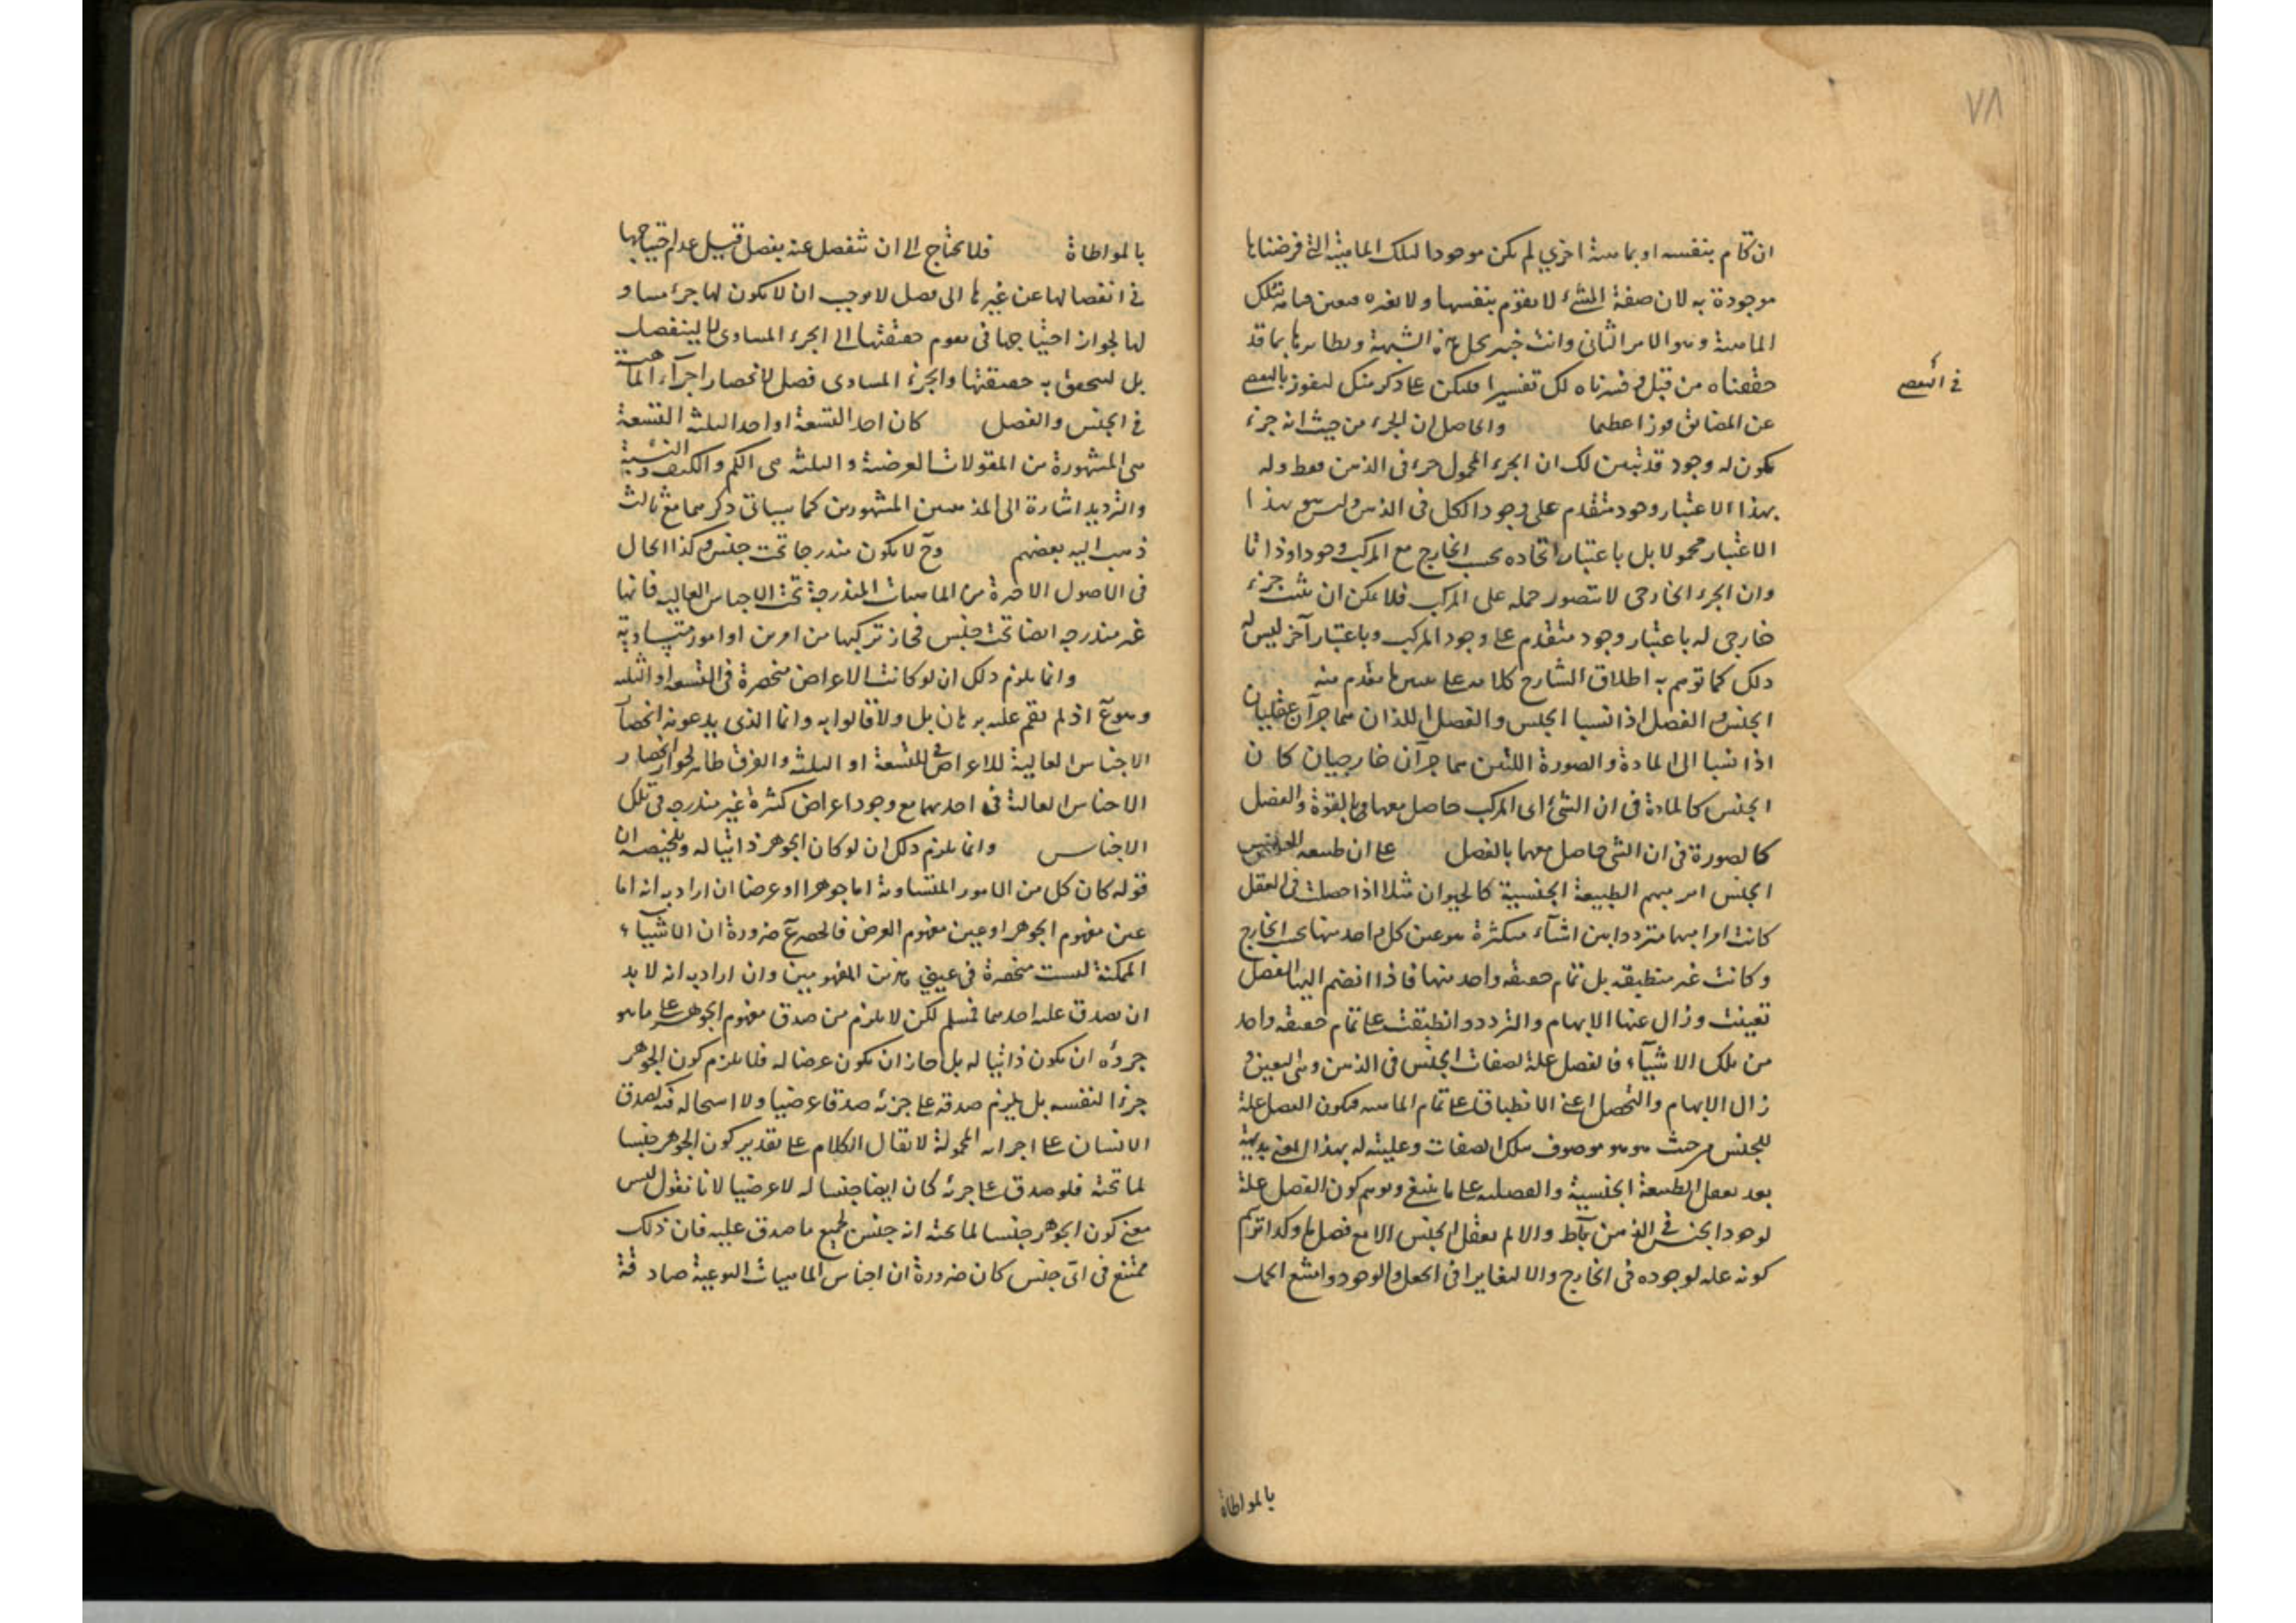 ٧٨
ان قام بنفسه او بماهية اخرى لم يكن موجودا لتلك الماهية التى فرضناها
موجودة به لان صفة الشىء لا يقوم بنفسها ولا بغيره فتعين قيامه بتلك
الماهية وهو الامر الثانى وانت خبير بحل هذه الشبهة ونظايرها بما قد
حققناه من قبل وفسرناه لك تفسيرا فليكن على ذكر منك لتفوز بالتفصى
فى
عن المضائق فوزا عظيما والحاصل ان الجزء من حيث انه جزء
يكون له وجود قد تبين لك ان الجزء المحمول جزء فى الذهن فقط وله
بهذا الاعتبار وجود متقدم على وجود الكل فى الذهن وليس هو بهذا
الاعتبار محمولا بل باعتبار اتحاده بحسب الخارج مع المركب وجودا وذاتا
وان الجزء الخارجى لا يتصور حمله على المركب فلا يمكن ان يثبت جزء
خارجى له باعتبار وجود متقدم على وجود المركب وباعتبار آخر ليس له
ذلك كما توهم به اطلاق الشارح كلامه على ما تقدم منه
الجنس والفصل اذا نسبا الجنس والفصل اللذان هما جزآن عقليان
اذا نسبا الى المادة والصورة اللتين هما جزآن خارجيان كان
الجنس كالمادة فى ان الشىء اى المركب حاصل معها بالقوة والفصل
كالصورة فى ان الشى حاصل معها بالفعل على ان طبيعة
الجنس امر مبهم الطبيعة الجنسية كالحيوان مثلا اذا حصلت فى العقل
كانت امرا مبهما مترددا بين اشياء متكثرة هو عين كل واحد منها بحسب الخارج
وكانت غير منطبقه بل تمام حقيقه واحد منها فاذا انضم اليها الفصل
تعينت وزال عنها الابهام والتردد وانطبقت على تمام حقيقه واحد
من تلك الاشياء فالفصل علة لصفات الجنس فى الذهن وهى التعين و
زال الابهام والتحصل اعنى الانطباق على تمام الماهيه فيكون الفصل علة
للجنس من حيث هو موصوف بتلك الصفات وعليته له بهذا المعنى بديهية
بعد تعقل الطبيعة الجنسية والفصليه على ما ينبغى وتوهم كون الفصل علة
لوجود الجنس فى الذهن باطل والا لم يعقل الجنس الا مع فصل ما وكذا توهم
كونه علة لوجوده فى الخارج والا لتغايرا فى الجعل والوجود وامتنع الحمل
بالمواطاة
بالمواطاة فلا يحتاج الى ان تنفصل عنه بفصل قيل عدم احتياجها
فى انفصالها عن غيرها الى فصل لا يوجب ان لا يكون لها جزء مساو
لها لجواز احتياجها فى تقوم حقيقتها الى الجزء المساوى لا لينفصل
بل لتحقق به حقيقتها والجزء المساوى فصل لانحصار اجزاء الماهية
فى الجنس والفصل كان احد التسعة او احد الثلثة التسعة
هى المشهورة من المقولات العرضية والثلثة هى الكم والكيف والنسبة
والترديد اشارة الى المذهبين المشهورين كما سياتى ذكرهما مع ثالث
ذهب اليه بعضهم وح لا يكون مندرجا تحت جنس وكذا الحال
فى الاصول الاخيرة من الماهيات المندرجة تحت الاجناس العاليه فانها
غير مندرجه ايضا تحت جنس فجاز تركبها من امرين او امور متساوية
وانما يلزم ذلك ان لو كانت الاعراض منحصرة فى التسعة او الثلثه
وهو ع اذ لم يقم عليه برهان بل ولا قالوا به وانما الذى يدعونه انحصار
الاجناس العالية للاعراض فى التسعة او الثلثه والفرق ظاهر لجواز انحصار
الاجناس العالية فى احديهما مع وجود اعراض كثيرة غير مندرجه فى تلك
الاجناس وانما يلزم ذلك ان لو كان الجوهر ذاتيا له وتلخيصه ان
قوله كان كل من الامور المتساوية اما جوهرا او عرضا ان اراد به انه اما
عين مفهوم الجوهر او عين مفهوم العرض فالحصر ع ضرورة ان الاشياء
الممكنة ليست منحصرة فى عينى هذين المفهومين وان اراد به انه لا بد
ان يصدق عليه احدهما فمسلم لكن لا يلزم من صدق مفهوم الجوهر على ما هو
جزؤه ان يكون ذاتيا له بل جاز ان يكون عرضا له فلا يلزم كون الجوهر
جزءا لنفسه بل يلزم صدقه على جزئه صدقا عرضيا ولا استحاله فيه كصدق
الانسان على اجزائه المحمولة لا يقال الكلام على تقدير كون الجوهر جنسا
لما تحته فلو صدق على جزئه كان ايضا جنسا له لا عرضيا لانا نقول ليس
معنى كون الجوهر جنسا لما تحته انه جنس لجميع ما صدق عليه فان ذلك
ممتنع فى اى جنس كان ضرورة ان اجناس الماهيات النوعية صادقة